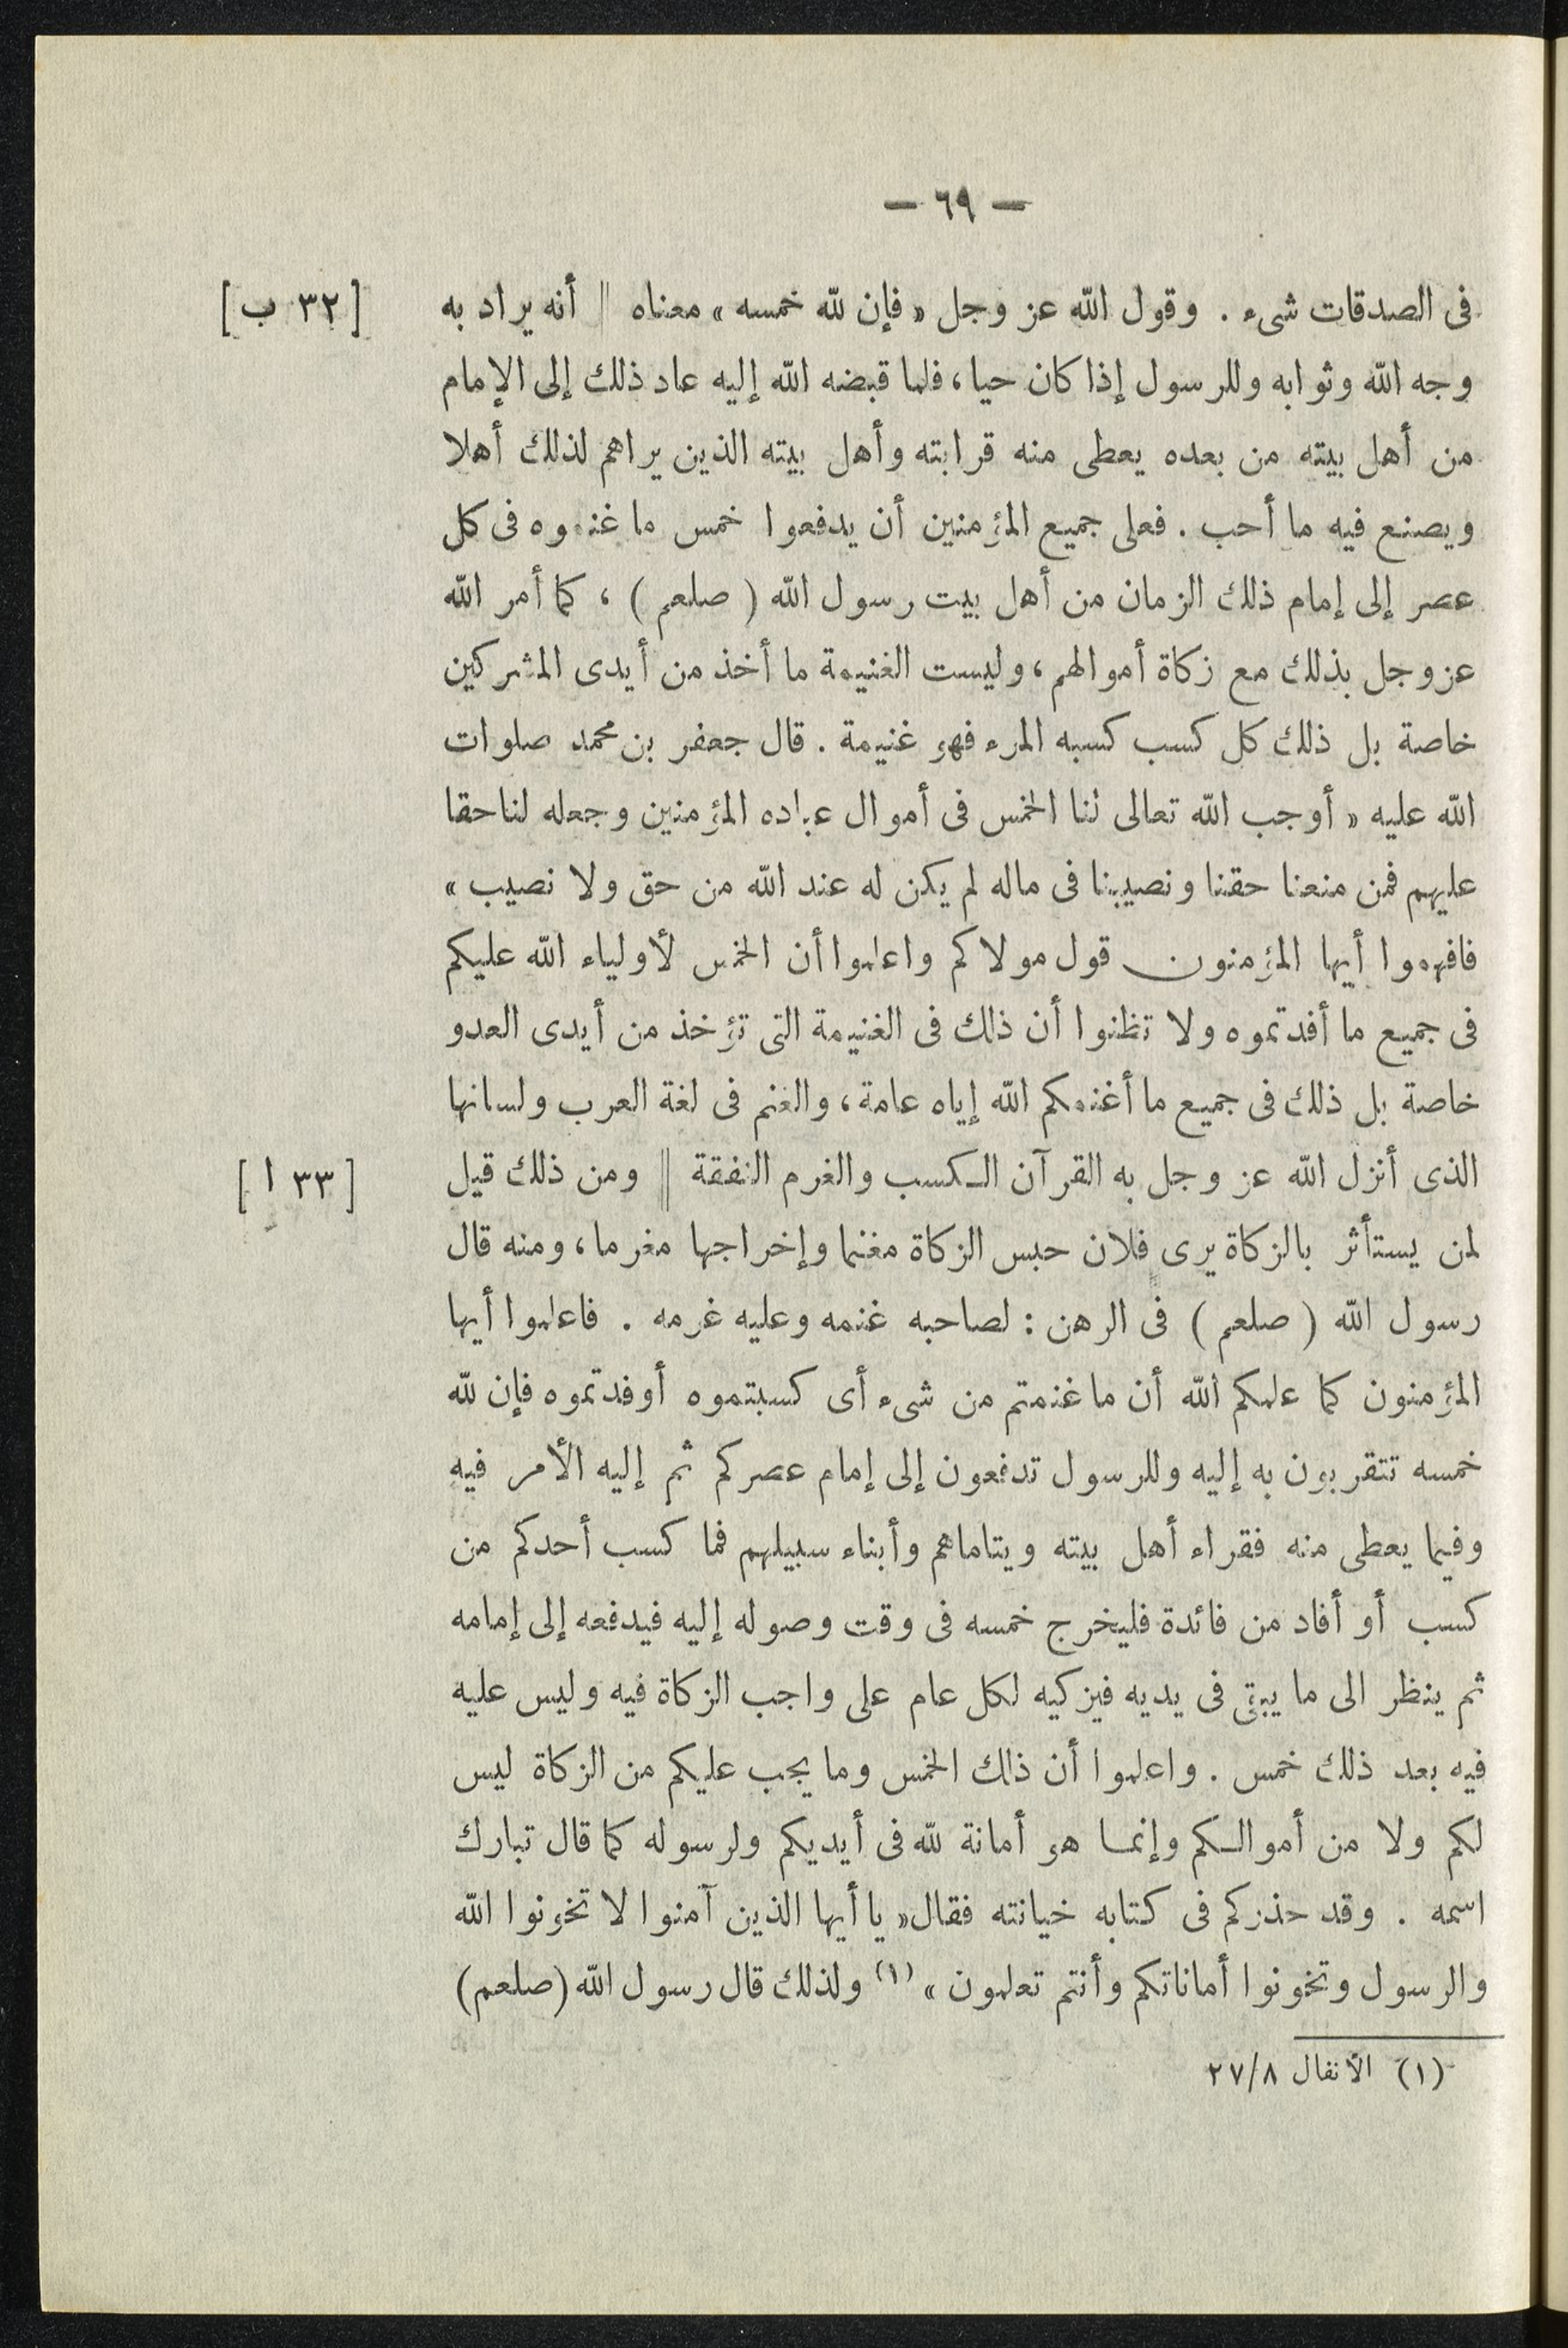 — ٦٩ —
فى الصدقات شىء . وقول الله عز وجل « فإن لله خمسه » معناه || أنه يراد به [ ٣٢ ب ]
وجه الله وثوابه وللرسول إذا كان حيا ، فلما قبضه الله إليه عاد ذلك إلى الإمام
من أهل بيته من بعده يعطى منه قرابته وأهل بيته الذين يراهم لذلك أهلا
ويصنع فيه ما أحب . فعلى جميع المؤمنين أن يدفعوا خمس ما غنموه فى كل
عصر إلى إمام ذلك الزمان من أهل بيت رسول الله ( صلعم ) ، كما أمر الله
عز وجل بذلك مع زكاة أموالهم ، وليست الغنيمة ما أخذ من أيدى المشركين
خاصة بل ذلك كل كسب كسبه المرء فهو غنيمة . قال جعفر بن محمد صلوات
الله عليه « أوجب الله تعالى لنا الخمس فى أموال عباده المؤمنين وجعله لنا حقا
عليهم فمن منعنا حقنا ونصيبنا فى ماله لم يكن له عند الله من حق ولا نصيب »
فافهموا أيها المؤمنون قول مولاكم واعلموا أن الخمس لأولياء الله عليكم
فى جميع ما أفدتموه ولا تظنوا أن ذلك فى الغنيمة التى تؤخذ من أيدى العدو
خاصة بل ذلك فى جميع ما أغنمكم الله إياه عامة ، والغنم فى لغة العرب ولسانها
الذى أنزل الله عز وجل به القرآن الكسب والغرم النفقة || ومن ذلك قيل [ ٣٣ ا ]
لمن يستأثر بالزكاة يرى فلان حبس الزكاة مغنما وإخراجها مغرما ، ومنه قال
رسول الله ( صلعم ) فى الرهن : لصاحبه غنمه وعليه غرمه . فاعلموا أيها
المؤمنون كما علمكم الله أن ما غنمتم من شىء أى كسبتموه أو فدتموه فإن لله
خمسه تتقربون به إليه وللرسول تدفعون إلى إمام عصركم ثم إليه الأمر فيه
وفيما يعطى منه فقراء أهل بيته ويتاماهم وأبناء سبيلهم فما كسب أحدكم من
كسب أو أفاد من فائدة فليخرج خمسه فى وقت وصوله إليه فيدفعه إلى إمامه
ثم ينظر الى ما يبقى فى يديه فيزكيه لكل عام على واجب الزكاة فيه وليس عليه
فيه بعد ذلك خمس . واعلموا أن ذلك الخمس وما يجب عليكم من الزكاة ليس
لكم ولا من أموالكم وإنما هو أمانة لله فى أيديكم ولرسوله كما قال تبارك
اسمه . وقد حذركم فى كتابه خيانته فقال « يا أيها الذين آمنوا لا تخونوا الله
والرسول وتخونوا أماناتكم وأنتم تعلمون » (١) ولذلك قال رسول الله ( صلعم )
(١) الأنفال ٢٧/٨